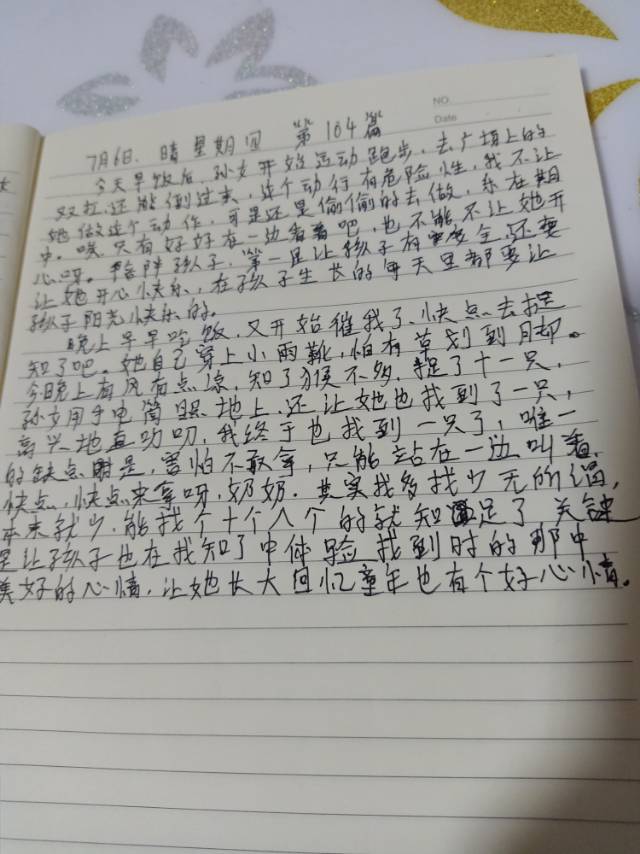 NO.
Date
7月6日. 晴 星期四 第104篇
今天早饭后, 孙女开始运动跑步, 去广场上的
双杠, 还能倒过来, 这个动行有危险性, 我不让
她做这个动作, 可是还是偷偷的去做,
中。唉, 只有好好在一边看着吧, 也不能不让她开
心呀。陪陪孩子, 第一是让孩子有安全, 还要
让她开心快乐, 在孩子生长的每天里都要让
孩子阳光快乐的。
晚上早早吃饭, 又开始催我了, 快点去捉
知了吧。她自己穿上小雨靴, 怕有草划到月却。
今日晚上有风有点凉, 知了猴不多, 捉了十一只,
孙女用手电筒照地上, 还让她也找到了一只,
高兴地直叨叨, 我终于也找到一只了, 唯一
的缺点就是, 害怕不敢拿, 只能站在一边叫着,
快点, 快点来拿呀, 奶奶. 其实找多找少无所谓,
本来就少, 能找个十个八个的就知足了 关键
是让孩子也在找知了中体验找到时的那中
美好的心情, 让她长大回忆童年也有个好心情。